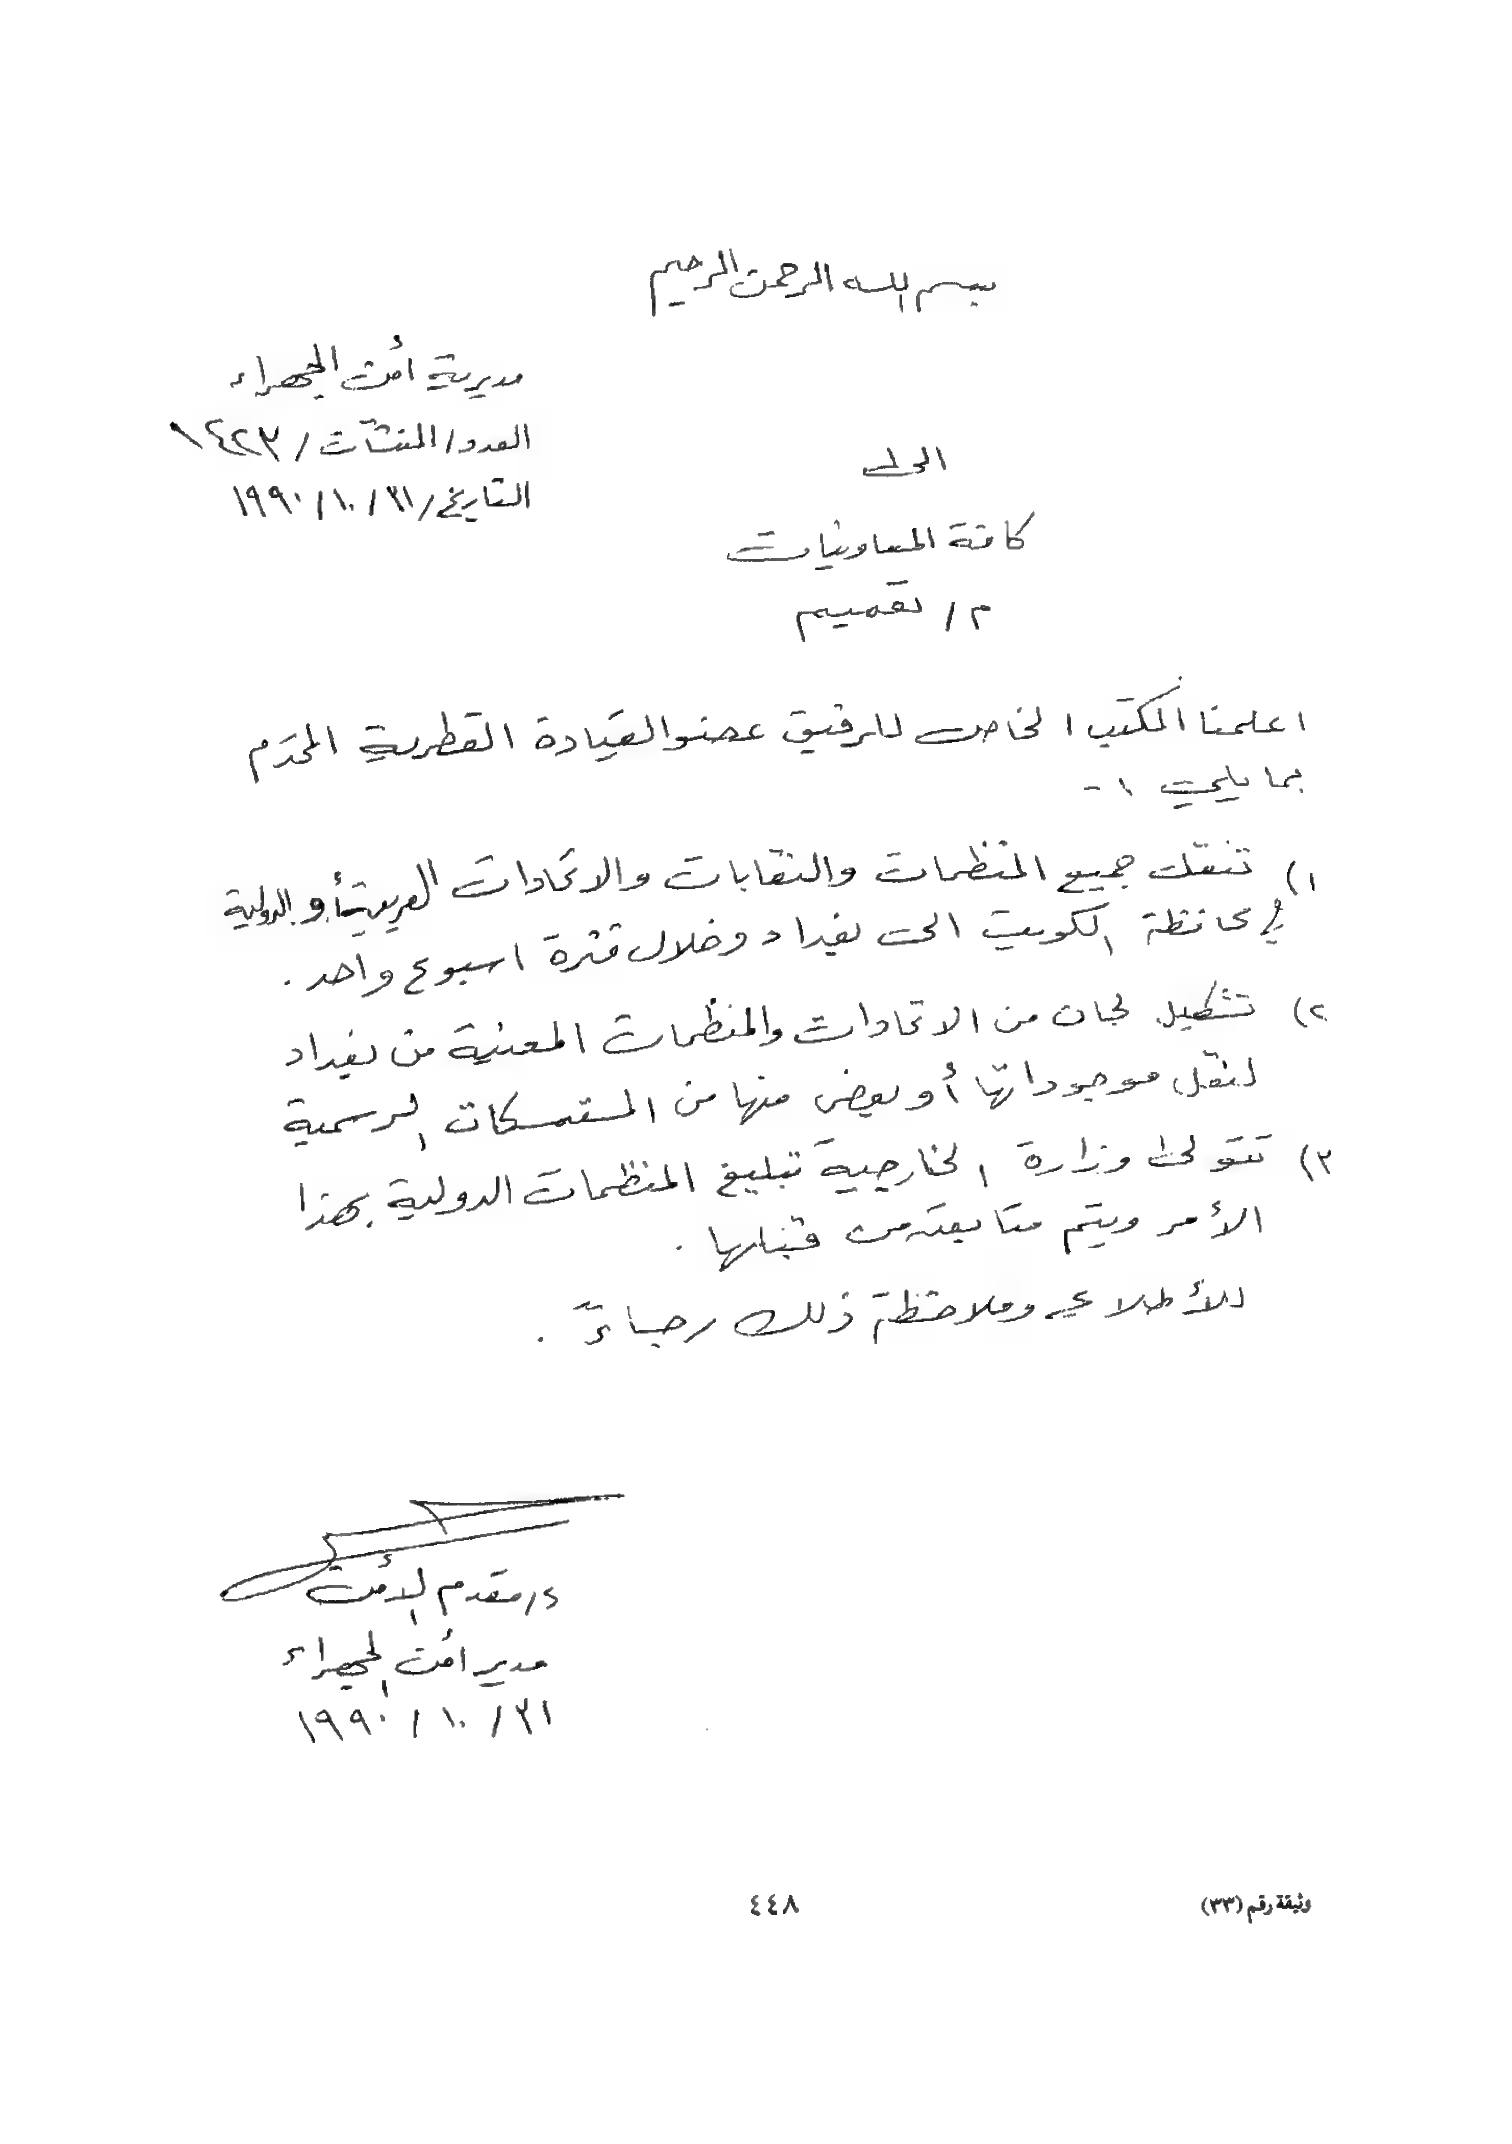 بسم الله الرحمن الرحيم
مديرية أمن الجهراء
العدد/ المنشآت / ١٤٢٣
التاريخ/ ٣١ / ١٠ / ١٩٩٠
الى
كافة المعاونيات
م / تعميم
اعلمنا المكتب الخاص للرفيق عضو القيادة القطرية المحترم
بما يلي :-
١) تنقل جميع المنظمات والنقابات والاتحادات العربية أو الدولية
في محافظة الكويت الى بغداد وخلال فترة اسبوع واحد .
٢) تشكيل لجان من الاتحادات والمنظمات المعنية من بغداد
لنقل موجوداتها أو بعض منها من المستمسكات الرسمية
٣) تتولى وزارة الخارجية تبليغ المنظمات الدولية بهذا
الأمر ويتم متابعته من قبلها .
للأطلاع وملاحظة ذلك رجاءً .
ع/ مقدم الأمن
مدير أمن الجهراء
٣١ / ١٠ / ١٩٩٠
وثيقة رقم (٣٣)
٤٤٨